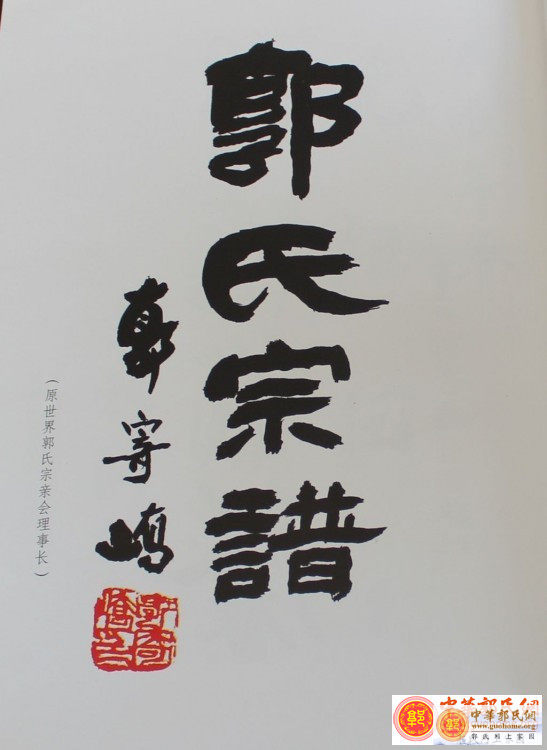 郭氏宗譜
郭寄嶠
(原世界郭氏宗亲会理事长)
中华郭氏網
中華郭氏網
www.guohome.org
郭氏网上家园